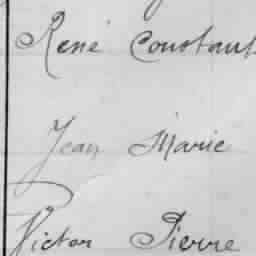 René Constant
Jean Marie
Victor Pierre